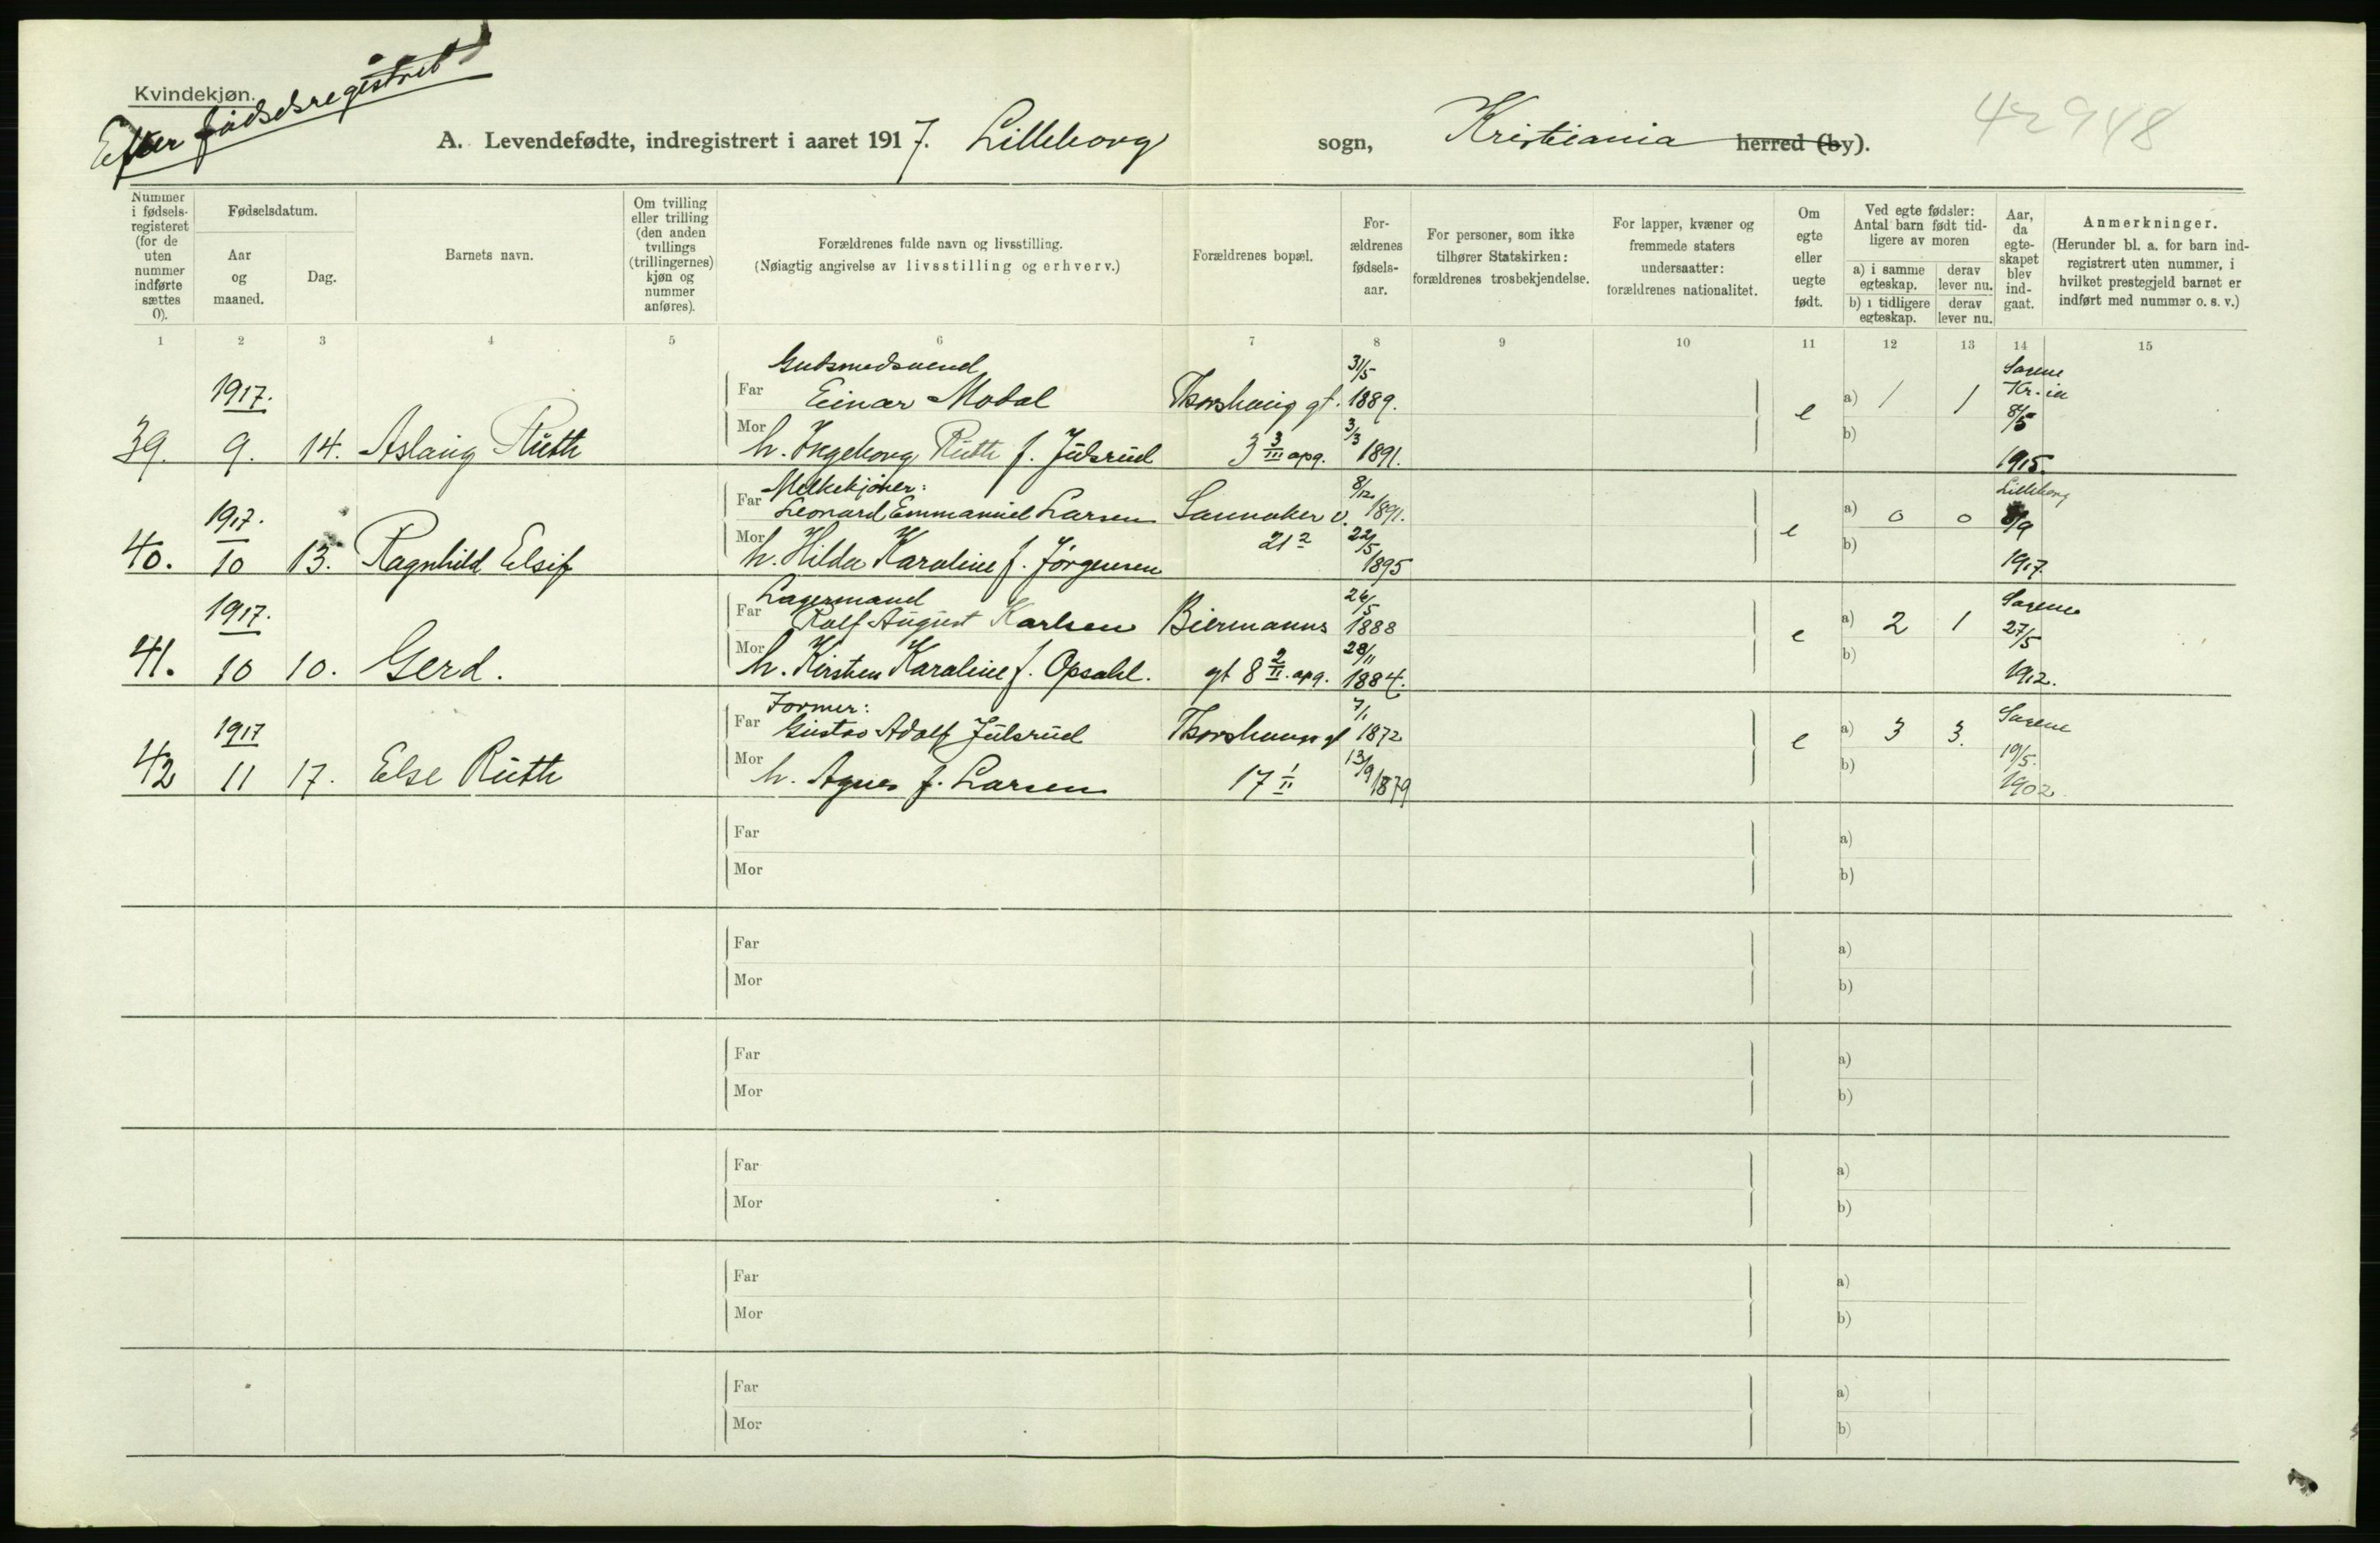 Kvindekjøn.
Efter fødselsregistret
A. Levendefødte, indregistrert i aaret 1917. Lilleborg sogn, Kristiania herred (by).
42948
Nummer i fødsels-registeret (for de uten nummer indførte sættes 0).
Fødselsdatum.
Aar og maaned.
Dag.
Barnets navn.
Om tvilling eller trilling (den anden tvillings (trillingernes) kjøn og nummer anføres).
Forældrenes fulde navn og livsstilling.
(Nøiagtig angivelse av livsstilling og erhverv.)
Forældrenes bopæl.
For-ældrenes fødsels-aar.
For personer, som ikke tilhører Statskirken: forældrenes trosbekjendelse.
For lapper, kvæner og fremmede staters undersaatter: forældrenes nationalitet.
Om egte eller uegte født.
Ved egte fødsler: Antal barn født tid-ligere av moren
a) i samme egteskap.
derav lever nu.
b) i tidligere egteskap.
derav lever nu.
Aar, da egte-skapet blev ind-gaat.
Anmerkninger.
(Herunder bl. a. for barn ind-registrert uten nummer, i hvilket prestegjeld barnet er indført med nummer o. s. v.)
1 2 3 4 5 6 7 8 9 10 11 12 13 14 15
Gulsmedsvend 31/5 Sagene
1917. Far Einar Modal Thorshaug gt. 1889. e a) 1 1 Kr.ia 8/5
39. 9. 14. Aslaug Ruth Mor h. Ingeborg Ruth f. Julsrud 3 3/III opg. 3/3 1891. b) 1915.
Melkekjører: 8/12 Lilleborg
1917. Far Leonard Emmanuel Larsen Sannaker v. 1891. e a) 0 0 8/9
40. 10 13. Ragnhild Elsif Mor h. Hilda Karoline f. Jørgensen 21 2 22/5 1895 b) 1917.
Lagermand 26/5 Sagene
1917. Far Rolf August Karlsen Biermanns 1888 e a) 2 1 27/5
41. 10 10. Gerd. Mor h. Kirsten Karoline f. Opsahl. gt 8 2/II. opg. 28/11 1884. b) 1912.
Former: 7/1 Sagene
1917 Far Gustav Adolf Julsrud Thorshaugs gt 1872 e a) 3 3. 19/5.
42 11 17. Else Ruth Mor h. Agnes f. Larsen 17 1/II 13/9 1879 b) 1902.
Far a)
Mor b)
Far a)
Mor b)
Far a)
Mor b)
Far a)
Mor b)
Far a)
Mor b)
Far a)
Mor b)